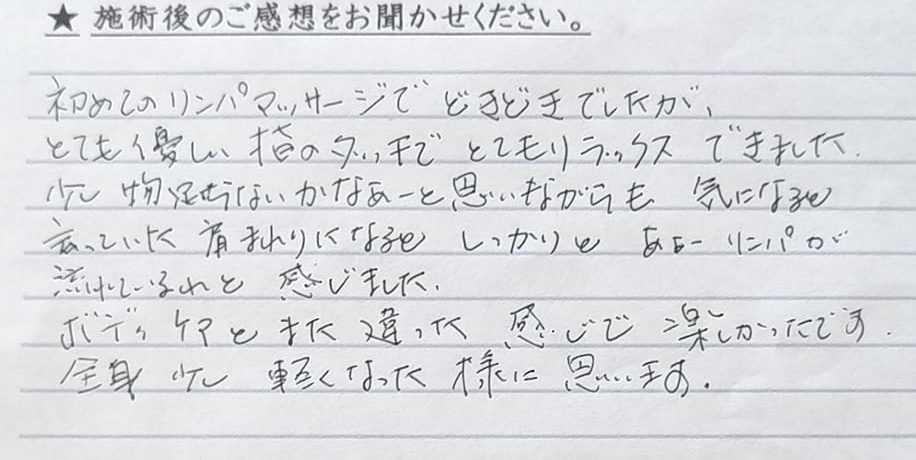 ★ 施術後のご感想をお聞かせください。
初めてのリンパマッサージで どきどきでしたが、
とても優しい 指のタッチで とてもリラックス できました.
少し 物足りないかなあーと思いながらも 気になると
言っていた 肩まわりに なると しっかりと あぁー リンパが
流れている と 感じました.
ボディケアと また 違った 感じで 楽しかったです.
全身 少し 軽くなった 様に 思います.